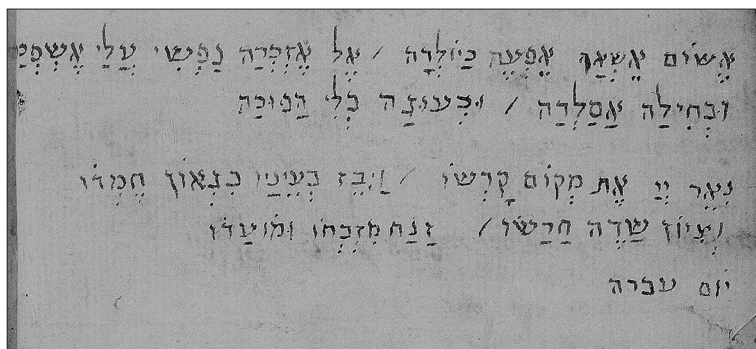 אֶשּׁוֹם אֶשְׁאַף אֶפְעֶה כַּיּוֹלֵדָה / אֶל אֶזְכְּרָה נַפְשִׁי עָלַי אֶשְׁפְּכָ
וּבְחִילָה אֲסַלְּדָה / וּבְעוּגָה בְּלִי הֲפוּכָה
נִאֵר יְיָ אֶת מְקוֹם קָדְשׁוֹ / וַיִּבֶז בְּעֵינָיו כִּגְאוֹן חֶמְדּוֹ
וְצִיּוֹן שָׂדֶה חֲרָשׁוֹ / זָנַח מִזְבְּחוֹ וּמוֹעֲדוֹ
יוֹם עברה